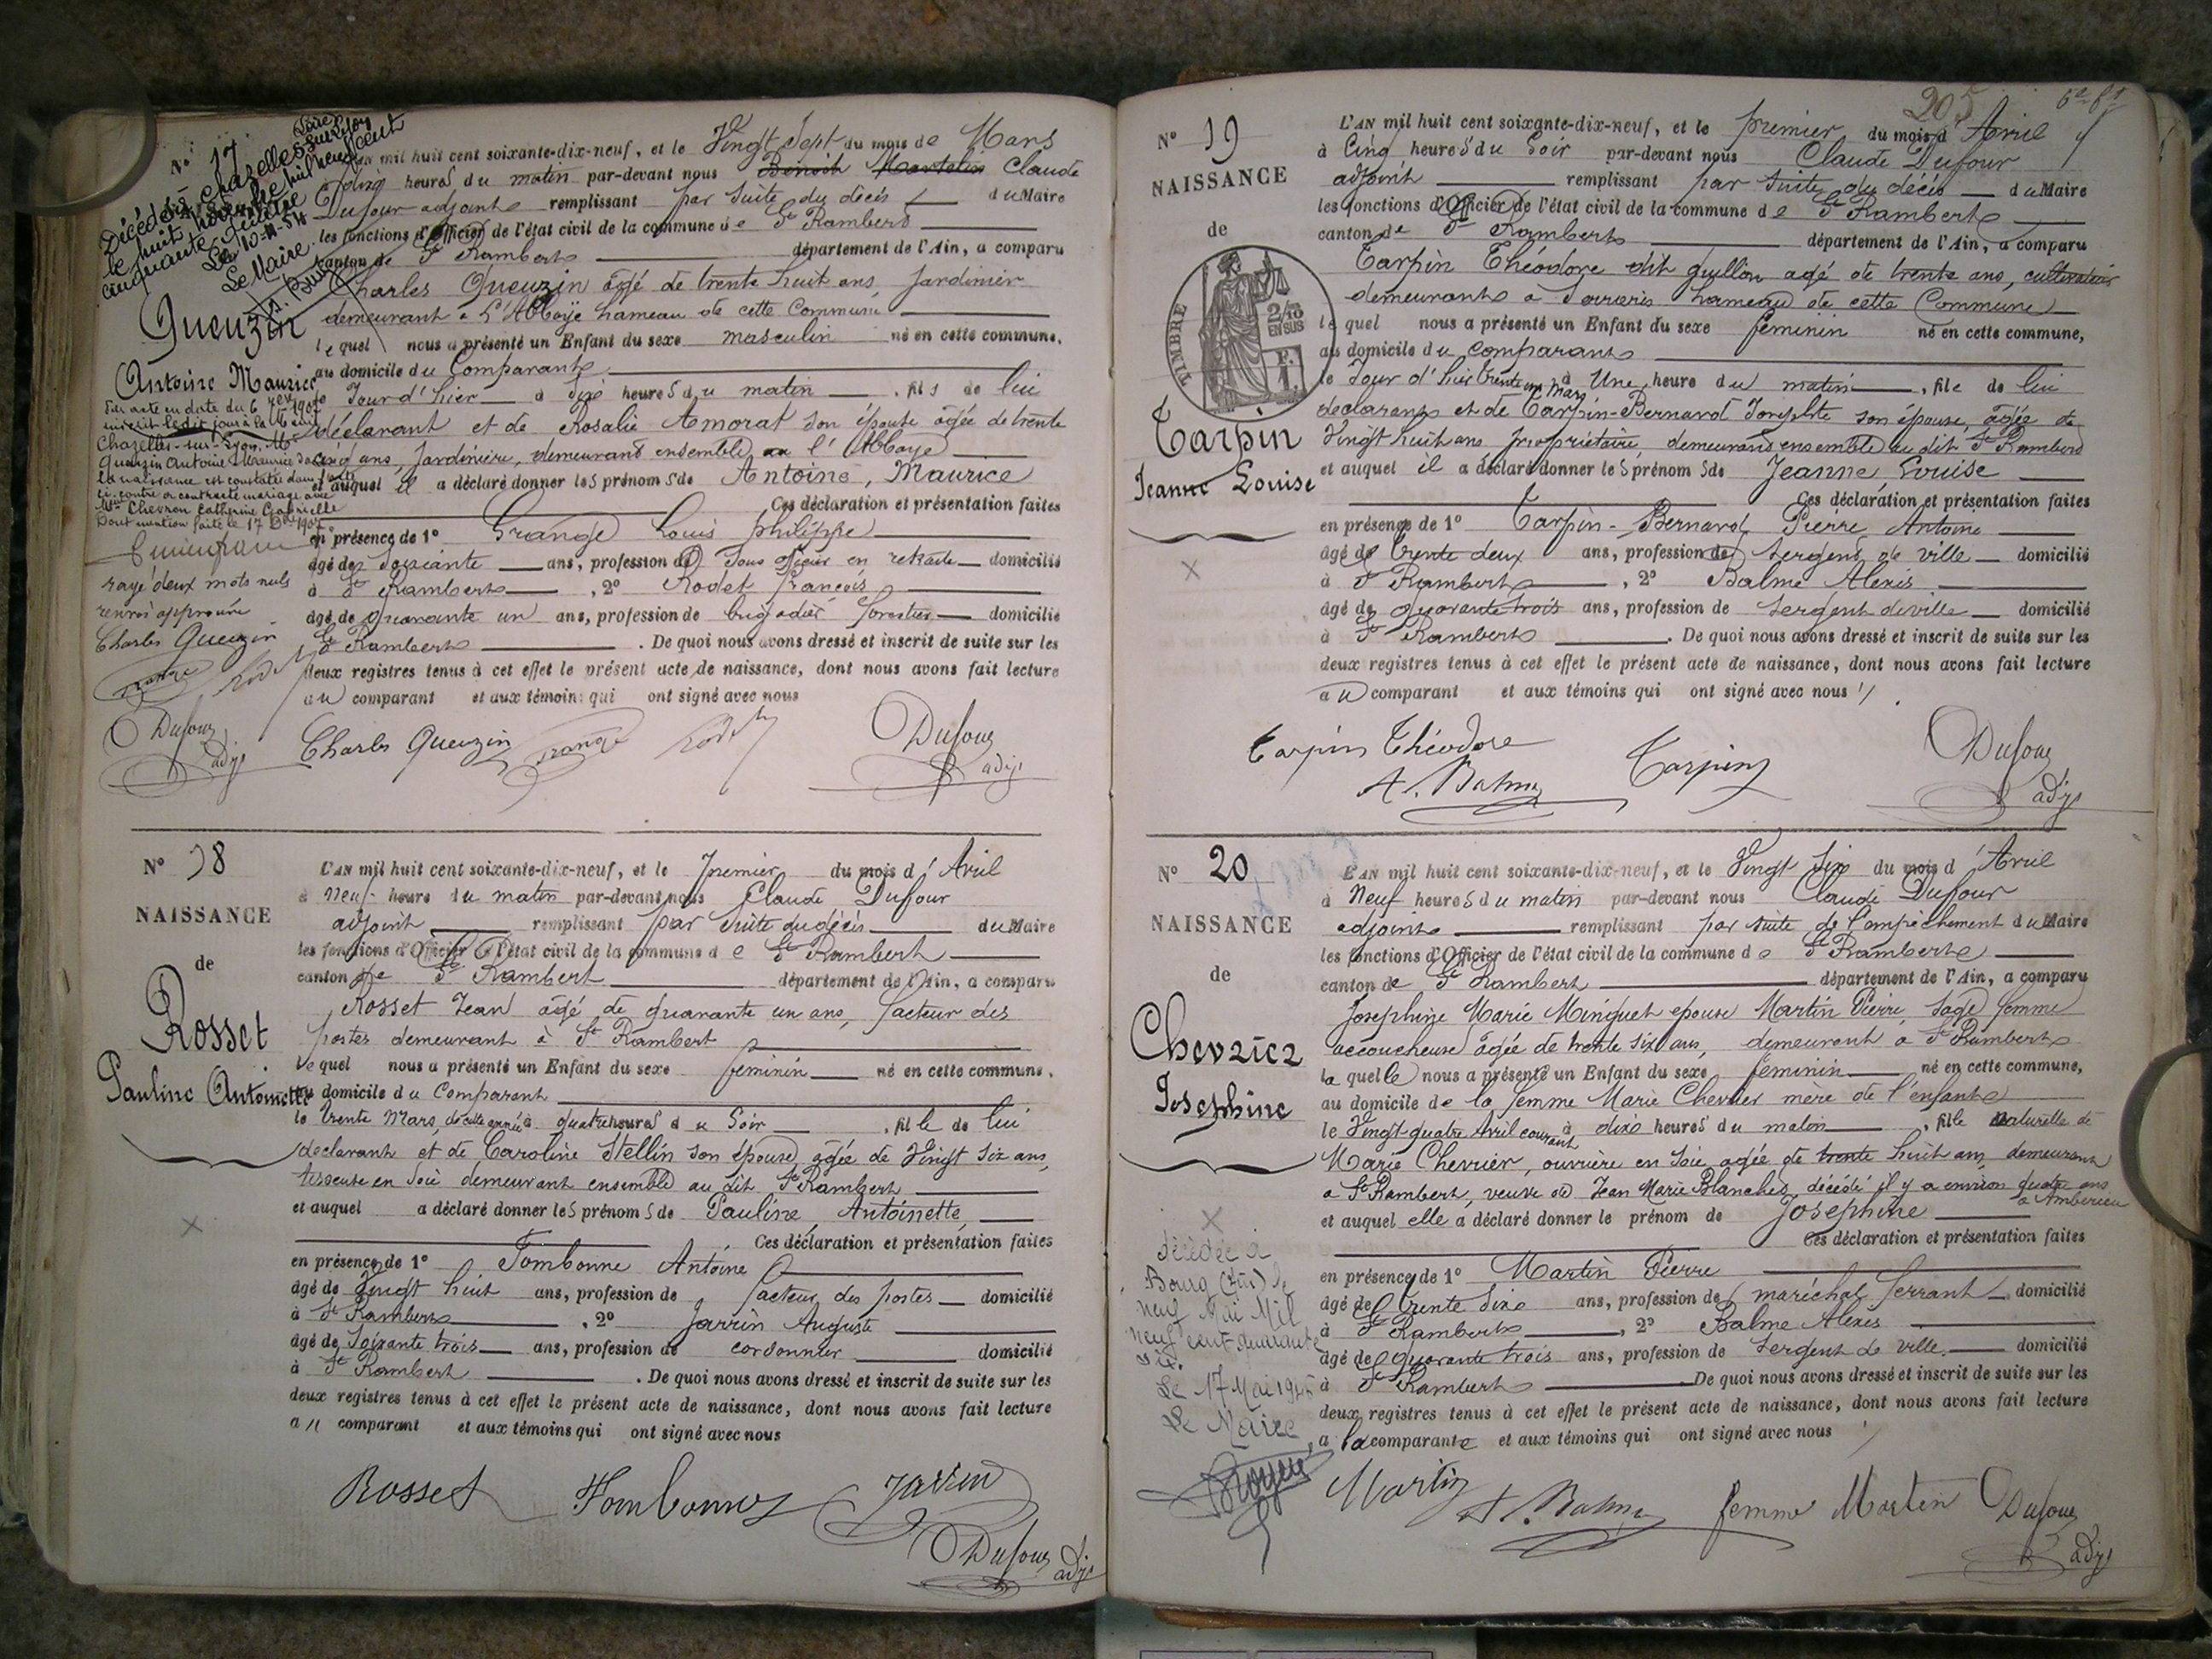 N° 17
Décédé à Chazelles sur Lyon
Loire
le huit novembre mil neuf cent
cinquante
Le 10-11-54
Le Maire
Queuzin
Antoine Maurice
Par acte en date du 6 1907
inscrit ledit jour à la
Chazelles-sur-Lyon, Mr
Queuzin Antoine Maurice
la naissance est constatée dans l'acte
ci-contre a contracté mariage avec
Mlle Chevron Catherine Gabrielle
Dont mention faite le 17 1907
rayé deux mots nuls
renvoi approuvé
Charles Queuzin
Grange Rodet
Dufour
adjt
L'AN mil huit cent soixante-dix-neuf, et le Vingt Sept du mois de Mars
à dix heures du matin par-devant nous Benoit Martelin Claude
Dufour adjoint remplissant par suite du décès du Maire
les fonctions d'Officier de l'état civil de la commune de St Rambert
canton de St Rambert département de l'Ain, a comparu
Charles Queuzin âgé de trente huit ans, Jardinier
demeurant à L'Abbaye hameau de cette Commune
lequel nous a présenté un Enfant du sexe masculin né en cette commune,
au domicile du Comparant
le Jour d'hier à dix heures du matin , fils de lui
déclarant et de Rosalie Amorat son épouse âgée de trente
cinq ans, Jardinière, demeurant ensemble à l'Abbaye
et auquel il a déclaré donner les prénoms de Antoine, Maurice
Ces déclaration et présentation faites
en présence de 1° Grange Louis Philippe
âgé de Soixante ans, profession de Sous officier en retraite domicilié
à St Rambert , 2° Rodet François
âgé de quarante un ans, profession de brigadier forestier domicilié
à St Rambert . De quoi nous avons dressé et inscrit de suite sur les
deux registres tenus à cet effet le présent acte de naissance, dont nous avons fait lecture
au comparant et aux témoins qui ont signé avec nous
Charles Queuzin Grange Rodet Dufour
adjt
N° 18
NAISSANCE
de
Rosset
Pauline Antoinette
L'AN mil huit cent soixante-dix-neuf, et le Premier du mois d'Avril
à neuf heure du matin par-devant nous Claude Dufour
adjoint remplissant par suite du décès du Maire
les fonctions d'Officier de l'état civil de la commune de St Rambert
canton de St Rambert département de l'Ain, a comparu
Rosset Jean âgé de quarante un ans, facteur des
postes demeurant à St Rambert
lequel nous a présenté un Enfant du sexe féminin né en cette commune,
au domicile du Comparant
le trente Mars, de cette année à quatre heures du Soir , fille de lui
déclarant et de Caroline Stellin son épouse âgée de Vingt Six ans,
tisseuse en Soie demeurant ensemble au dit St Rambert
et auquel a déclaré donner les prénoms de Pauline, Antoinette,
Ces déclaration et présentation faites
en présence de 1° Fombonne Antoine
âgé de Vingt huit ans, profession de facteur des postes domicilié
à St Rambert , 2° Jarrin Auguste
âgé de Soixante trois ans, profession de cordonnier domicilié
à St Rambert . De quoi nous avons dressé et inscrit de suite sur les
deux registres tenus à cet effet le présent acte de naissance, dont nous avons fait lecture
au comparant et aux témoins qui ont signé avec nous
Rosset Fombonne Jarrin
Dufour adjt
205
N° 19
NAISSANCE
de
TIMBRE
2/10
EN SUS
Tarpin
Jeanne Louise
L'AN mil huit cent soixante-dix-neuf, et le premier du mois d'Avril
à Cinq heures du Soir par-devant nous Claude Dufour
adjoint remplissant par suite du décès du Maire
les fonctions d'Officier de l'état civil de la commune de St Rambert
canton de St Rambert département de l'Ain, a comparu
Tarpin Théodore dit Guillon agé de trente ans, cultivateur
demeurant à Serrières hameau de cette Commune
lequel nous a présenté un Enfant du sexe féminin né en cette commune,
au domicile du Comparant
le Jour d'hier trente un Mars à Une heure du matin , fille de lui
déclarant et de Tarpin-Bernard Josephte son épouse, âgée de
Vingt huit ans propriétaire, demeurans ensemble au dit St Rambert
et auquel il a déclaré donner les prénoms de Jeanne Louise
Ces déclaration et présentation faites
en présence de 1° Tarpin-Bernard Pierre Antoine
âgé de trente deux ans, profession de Sergent de ville domicilié
à St Rambert , 2° Balme Alexis
âgé de quarante trois ans, profession de Sergent de ville domicilié
à St Rambert . De quoi nous avons dressé et inscrit de suite sur les
deux registres tenus à cet effet le présent acte de naissance, dont nous avons fait lecture
au comparant et aux témoins qui ont signé avec nous
Tarpin Théodore Tarpin Dufour
A. Balme adjt
N° 20
NAISSANCE
de
Chevrier
Josephine
décédée à
Bourg (Ain) le
neuf Mai Mil
neuf cent quarante
Le 17 Mai 194
Le Maire
L'AN mil huit cent soixante-dix-neuf, et le Vingt Six du mois d'Avril
à Neuf heures du matin par-devant nous Claude Dufour
adjoint remplissant par suite de l'empêchement du Maire
les fonctions d'Officier de l'état civil de la commune de St Rambert
canton de St Rambert département de l'Ain, a comparu
Josephine Marie Minguet epouse Martin Pierre, Sage femme
accoucheuse âgée de trente Six ans, demeurant à St Rambert
laquelle nous a présenté un Enfant du sexe féminin né en cette commune,
au domicile de la femme Marie Chevrier mère de l'enfant
le Vingt-quatre Avril courant à dix heures du matin , fille naturelle de
Marie Chevrier, ouvrière en Soie agée de trente huit ans demeurant
à St Rambert, veuve de Jean Marie Blanchet, décédé il y a environ quatre ans
à Ambérieu
et auquel elle a déclaré donner le prénom de Josephine
Ces déclaration et présentation faites
en présence de 1° Martin Pierre
âgé de trente Six ans, profession de maréchal ferrant domicilié
à St Rambert , 2° Balme Alexis
âgé de quarante trois ans, profession de Sergent de ville domicilié
à St Rambert De quoi nous avons dressé et inscrit de suite sur les
deux registres tenus à cet effet le présent acte de naissance, dont nous avons fait lecture
a la comparante et aux témoins qui ont signé avec nous
Martin A. Balme femme Martin Dufour
adjt